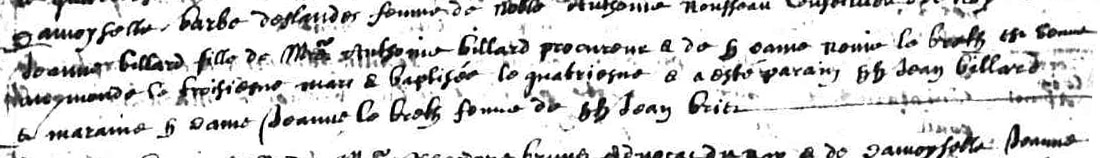 Damoyselle barbe deslandes femme de noble Anthoine Rousseau
Jeanne billard fille de Me Anthoine billard procureur & de h dame Renée le breth est venue
au monde le troisiesme mars & baptisée le quatriesme & a esté parain hh Jean billard
& maraine h dame Jeanne le breth femme de hh Jean briet
brunet advocat & de Damoyselle Jeanne